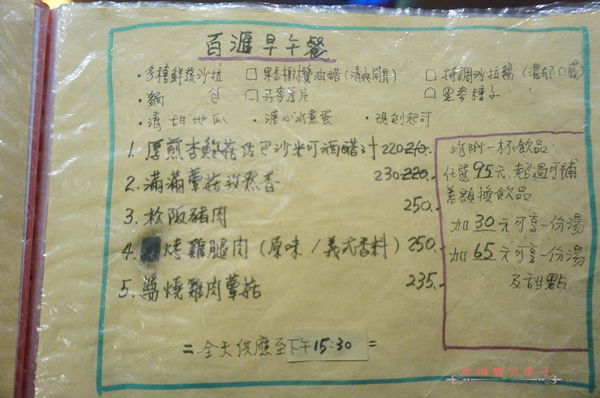 百滙早午餐
·多種鮮蔬沙拉 □果香橄欖油醋(清爽開胃) □特調沙拉醬(濃郁口感)
·麵包 □丹麥吐司 □黑麥穗子
·清甜地瓜 ·溏心冰燻蛋 ·
1. 厚煎杏鮑菇佐巴沙米可酒醋汁 220 210.-
2. 滿滿蕈菇 230 220.-
3. 松阪豬肉 250.-
4. 烤雞腿肉(原味/義式香料) 250.-
5. 醬燒雞肉蕈菇 235.-
=全天供應至下午15:30=
皆附一杯飲品
任選95元,超過可補
差額換飲品
加30元可享一份湯
加65元可享一份湯
及甜點